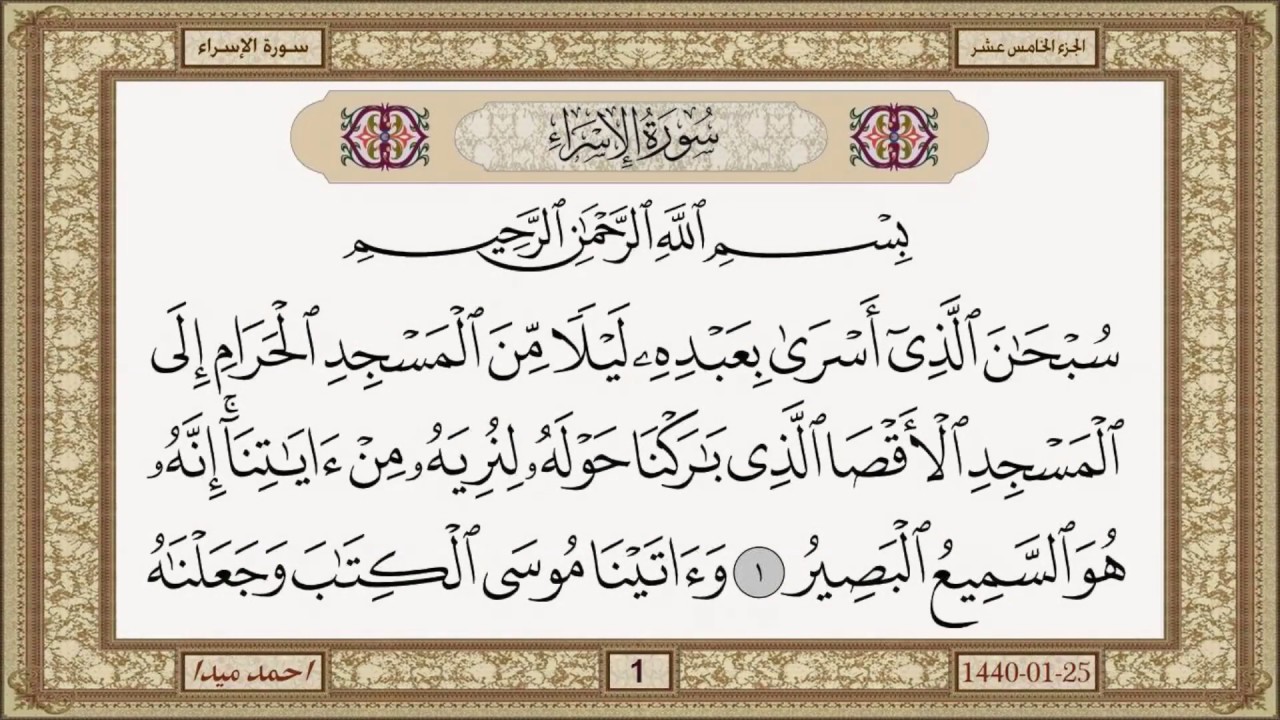 الجزء الخامس عشر
سورة الإسراء
سُورَةُ الإِسْرَاءِ
بِسْمِ ٱللَّهِ ٱلرَّحْمَٰنِ ٱلرَّحِيمِ
سُبْحَٰنَ ٱلَّذِىٓ أَسْرَىٰ بِعَبْدِهِۦ لَيْلًا مِّنَ ٱلْمَسْجِدِ ٱلْحَرَامِ إِلَى
ٱلْمَسْجِدِ ٱلْأَقْصَا ٱلَّذِى بَٰرَكْنَا حَوْلَهُۥ لِنُرِيَهُۥ مِنْ ءَايَٰتِنَآ ۚ إِنَّهُۥ
هُوَ ٱلسَّمِيعُ ٱلْبَصِيرُ ١ وَءَاتَيْنَا مُوسَى ٱلْكِتَٰبَ وَجَعَلْنَٰهُ
1440-01-25
1
احمد ميدا